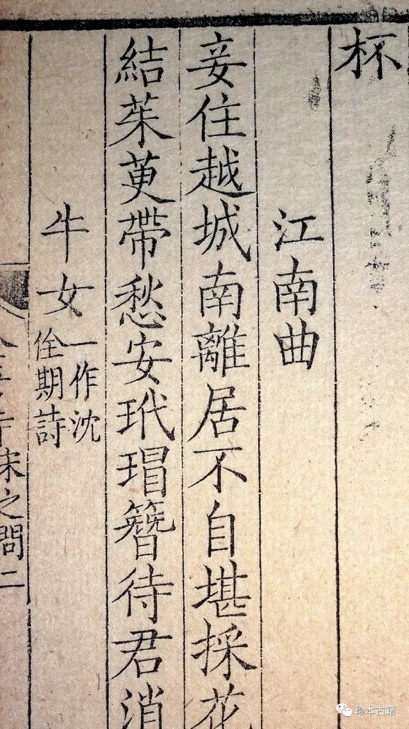 杯
江南曲
妾住越城南離居不自堪採花
結茱萸帶愁安玳瑁簪待君消
牛女
一作沈
佺期詩
宋之問二
珍本古籍